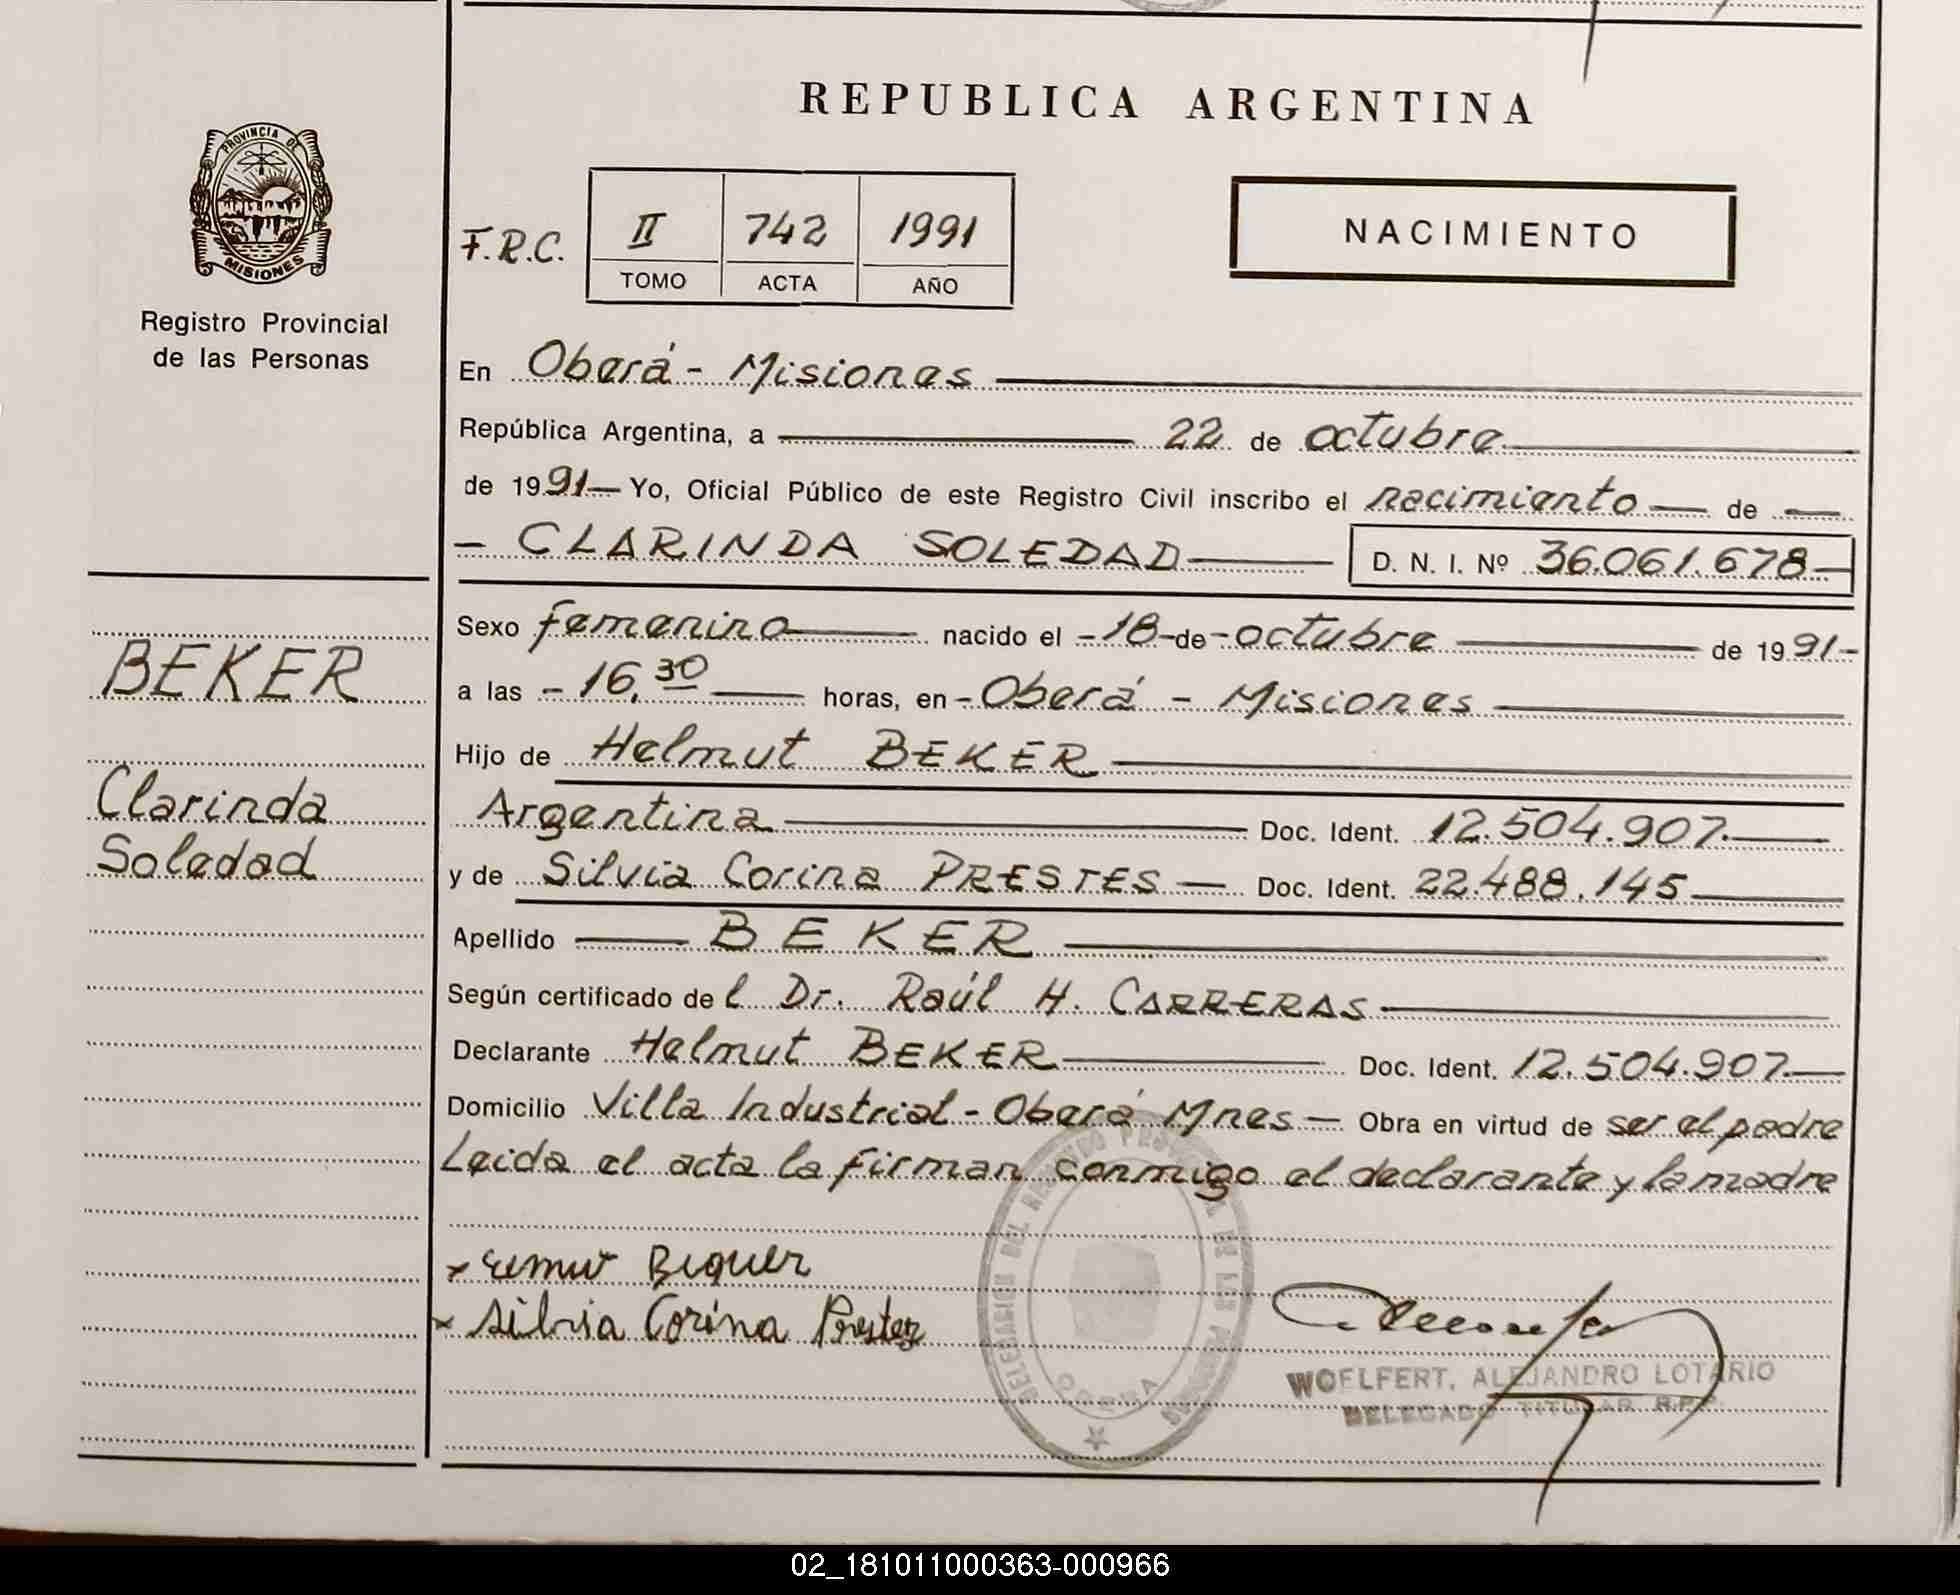 REPUBLICA ARGENTINA
PROVINCIA DE
MISIONES
Registro Provincial
de las Personas
F.R.C. II 742 1991
TOMO ACTA AÑO
NACIMIENTO
En Oberá - Misiones
República Argentina, a 22 de octubre
de 1991 Yo, Oficial Público de este Registro Civil inscribo el nacimiento de
- CLARINDA SOLEDAD D. N. I. Nº 36.061.678
Sexo femenino nacido el -18- de - octubre de 1991-
a las - 16,30 horas, en - Oberá - Misiones
Hijo de Helmut BEKER
Argentina Doc. Ident. 12.504.907.
y de Silvia Corina PRESTES Doc. Ident. 22.488.145
Apellido BEKER
Según certificado de l Dr. Raúl H. CARRERAS
Declarante Helmut BEKER Doc. Ident. 12.504.907.
Domicilio Villa Industrial - Oberá Mnes - Obra en virtud de ser el padre
Leida el acta la firman conmigo el declarante y la madre
BEKER
Clarinda
Soledad
x Biquer
x Silvia Corina Prestez
DELEGACION DEL REGISTRO PROVINCIAL DE LAS PERSONAS
OBERA
WOELFERT, ALEJANDRO LOTARIO
DELEGADO TITULAR R.P.P.
02_181011000363-000966